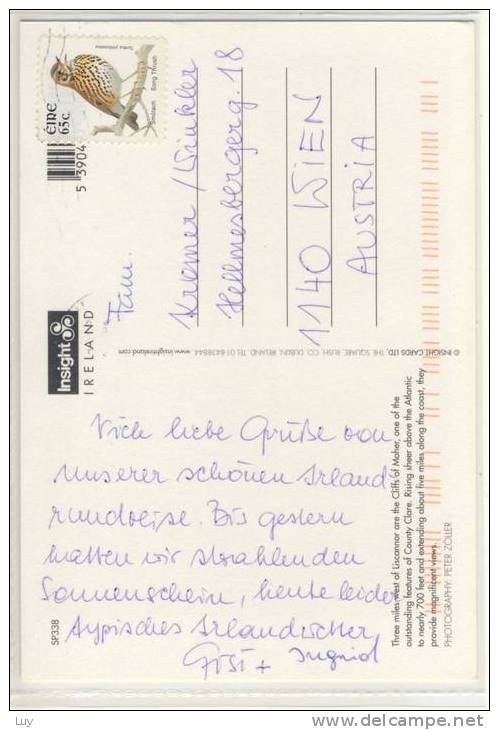 Turdus philomelos
Smólach Song Thrush
ÉIRE
65c
5 3904
Insight
IRELAND
Fam.
Kremer / Winkler
Hellmesbergerg. 18
1140 WIEN
AUSTRIA
© INSIGHT CARDS LTD., THE SQUARE, RUSH, CO. DUBLIN, IRELAND. TEL 01 6438844 www.insightireland.com
Viele liebe Grüße von
unserer schönen Irland
rundreise. Bis gestern
hatten wir strahlenden
Sonnenschein, heute leider
typisches
+ Ingrid
Three miles west of Liscannor are the Cliffs of Moher, one of the
outstanding features of County Clare. Rising sheer above the Atlantic
to nearly 700 feet and extending about five miles along the coast, they
provide magnificent views.
PHOTOGRAPHY: PETER ZOLLER
SP338
Luy
www.delcampe.net